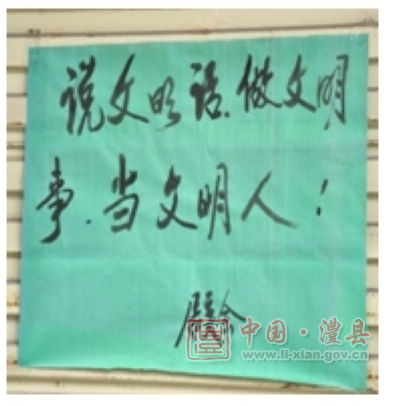 说文明话、做文明
事、当文明人！
中国·澧县
www.li-xian.gov.cn